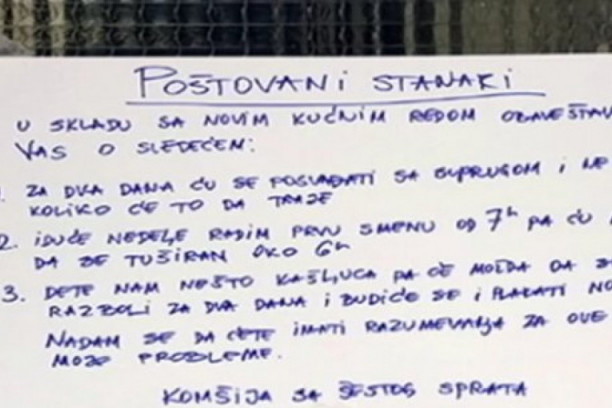 POŠTOVANI STANARI
U SKLADU SA NOVIM KUĆNIM REDOM OBAVEŠTAV
VAS O SLEDEĆEM:
ZA DVA DANA ĆU SE POSVAĐATI SA SUPRUGOM I NE
KOLIKO ĆE TO DA TRAJE
2. IDUĆE NEDELJE RADIM PRVU SMENU OD 7h PA ĆU
DA SE TUŠIRAM OKO 6h
3. DETE NAM NEŠTO KAŠLJUCA PA ĆE MOŽDA DA SE
RAZBOLI ZA DVA DANA I BUDIĆE SE I PLAKATI
NADAM SE DA ĆETE IMATI RAZUMEVANJA ZA OVE
MOJE PROBLEME.
KOMŠIJA SA ŠESTOG SPRATA